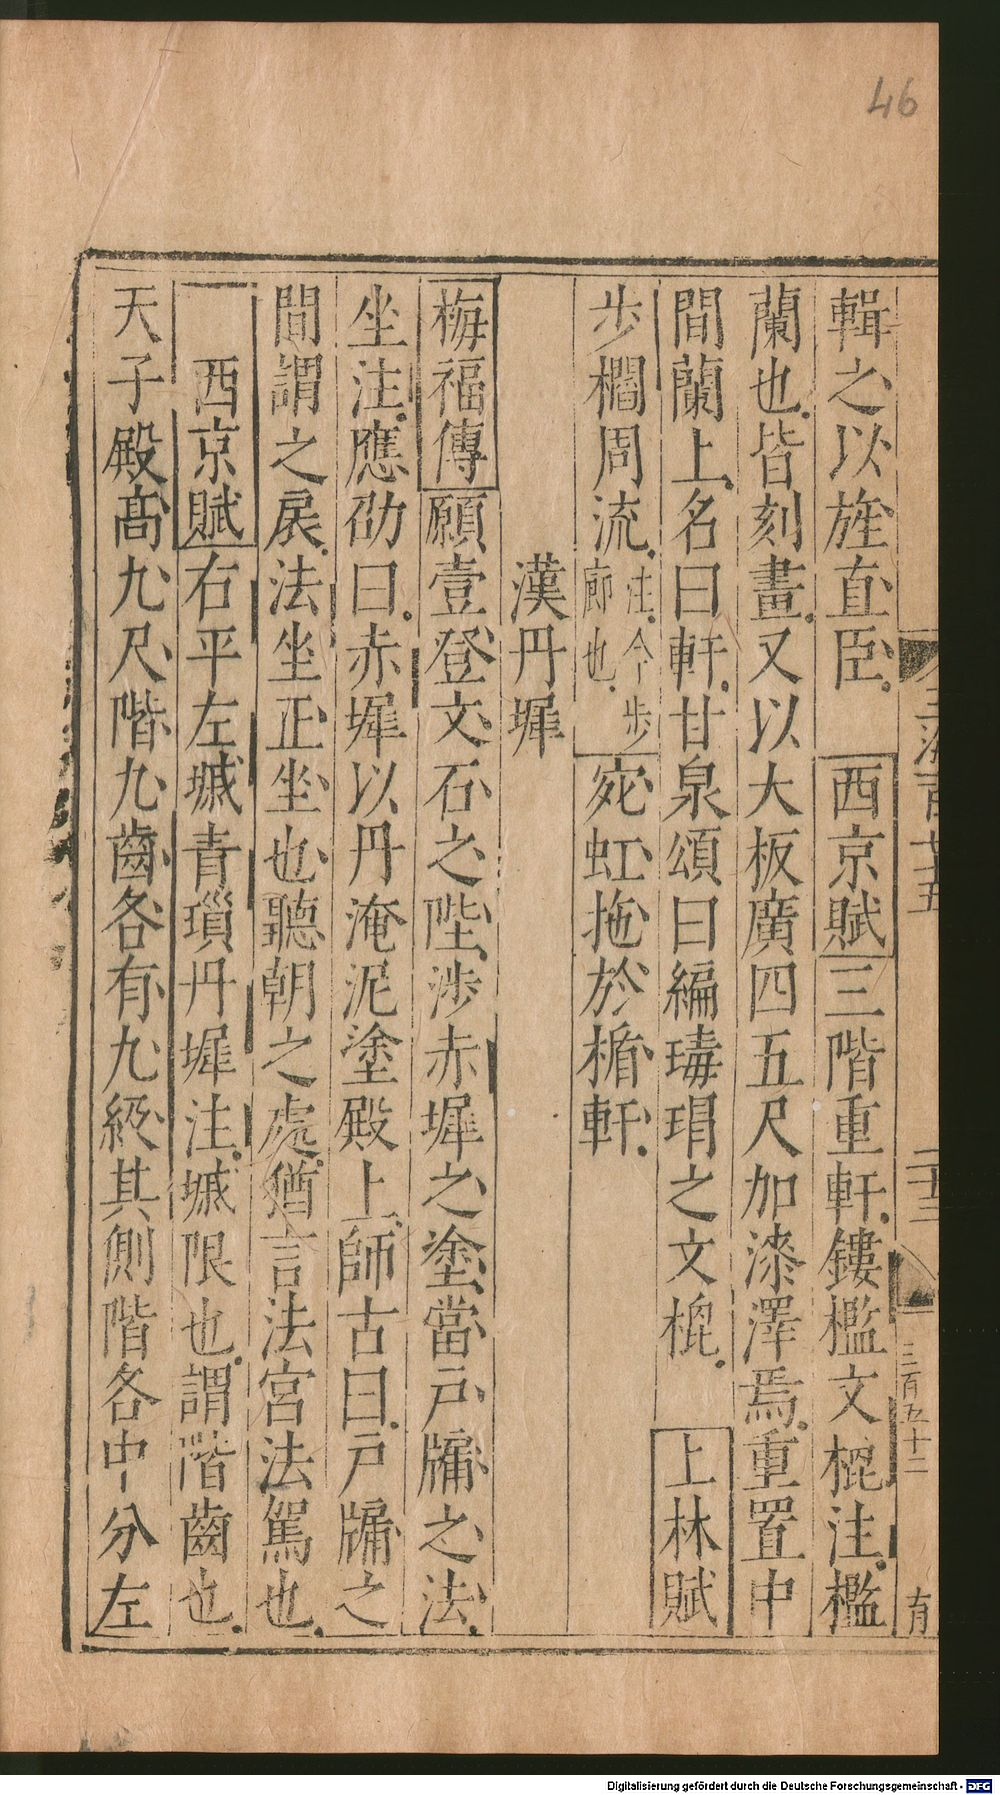 46
輯之以旌直臣　西京賦三階重軒鏤檻文㮰注檻
蘭也皆刻畫又以大板廣四五尺加漆澤焉重置中
間蘭上名曰軒甘泉頌曰編瑇瑁之文㮰　上林賦
步櫩周流注今步廊也　宛虹拖於楯軒
漢丹墀
梅福傳願壹登文石之陛涉赤墀之塗當戶牖之法
坐注應劭曰赤墀以丹淹泥塗殿上師古曰戶牖之
間謂之扆法坐正坐也聽朝之處猶言法宮法駕也
西京賦右平左墄青瑣丹墀注墄限也謂階齒也
天子殿高九尺階九齒各有九級其側階各中分左
百廿五
三百五十二
Digitalisierung gefördert durch die Deutsche Forschungsgemeinschaft - DFG